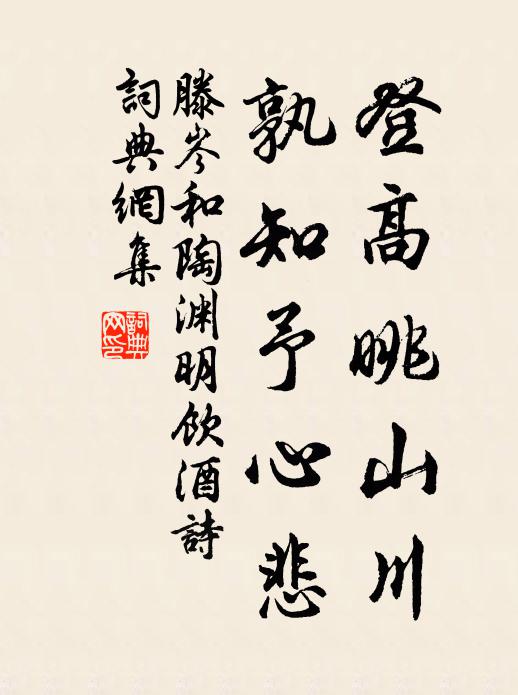 登高眺山川
孰知予心悲
滕岑和陶渊明飲酒詩
詞典網集
詞典
网印